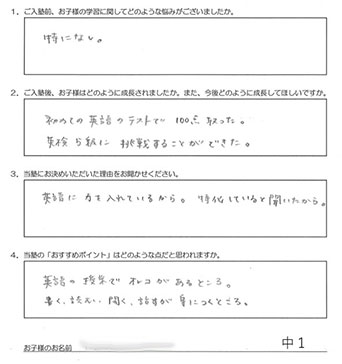 1. ご入塾前、お子様の学習に関してどのような悩みがございましたか。
特になし。
2. ご入塾後、お子様はどのように成長されましたか。また、今後どのように成長してほしいですか。
初めての英語のテストで100点取った。
英検5級に挑戦することができた。
3. 当塾にお決めいただいた理由をお聞かせください。
英語に力を入れているから。特化していると聞いたから。
4. 当塾の「おすすめポイント」はどのような点だと思われますか。
英語の授業で オレコ があるところ。
書く、読む、聞く、話すが身につくところ。
お子様のお名前
中1